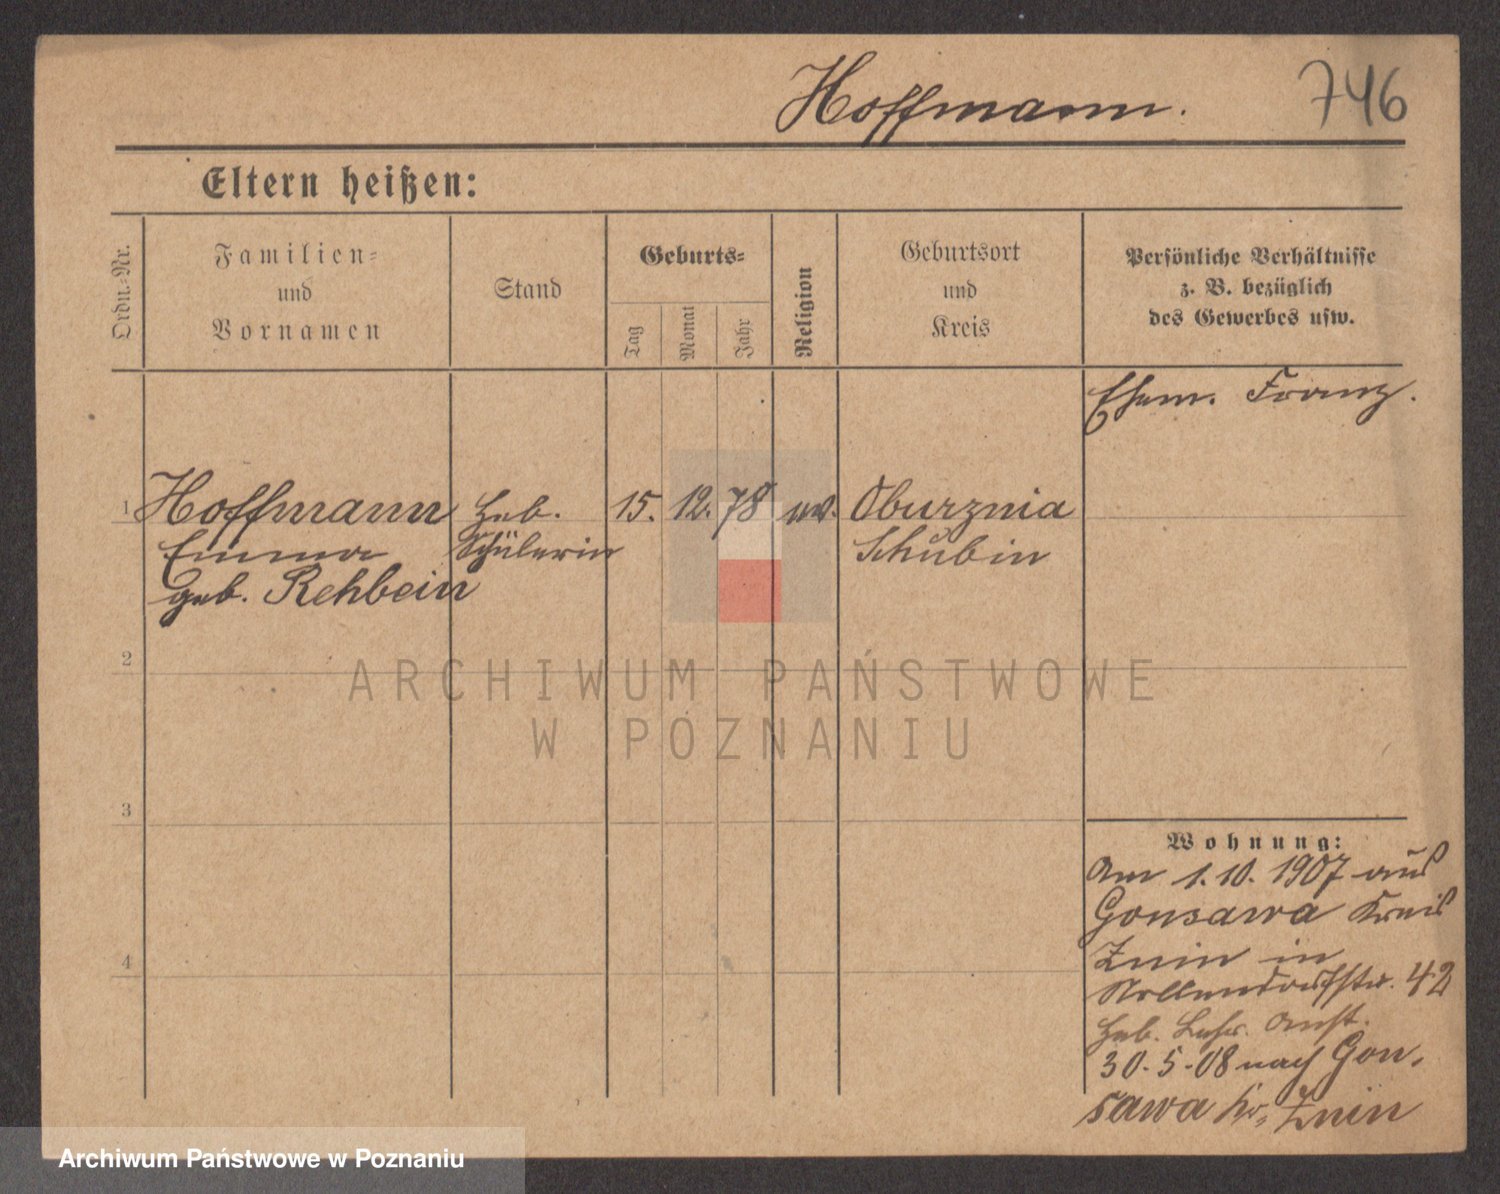 Hoffmann.
746
Eltern heißen:
Ordn.-Nr.
Familien-
und
Vornamen
Stand
Geburts-
Tag
Monat
Jahr
Religion
Geburtsort
und
Kreis
Persönliche Verhältnisse
z. B. bezüglich
des Gewerbes usw.
Ehem. Franz.
1
Hoffmann
Emma
geb. Rehbein
Heb.
Schülerin
15.
12.
78
ev.
Oburznia
Schubin
2
3
4
Wohnung:
Am 1. 10. 1907 aus
Gonsawa Kreis
Znin in
Nollendorfstr. 42
Heb. Lehr. Anst.
30. 5. 08 nach Gon-
sawa Kr. Znin
ARCHIWUM PAŃSTWOWE
W POZNANIU
Archiwum Państwowe w Poznaniu